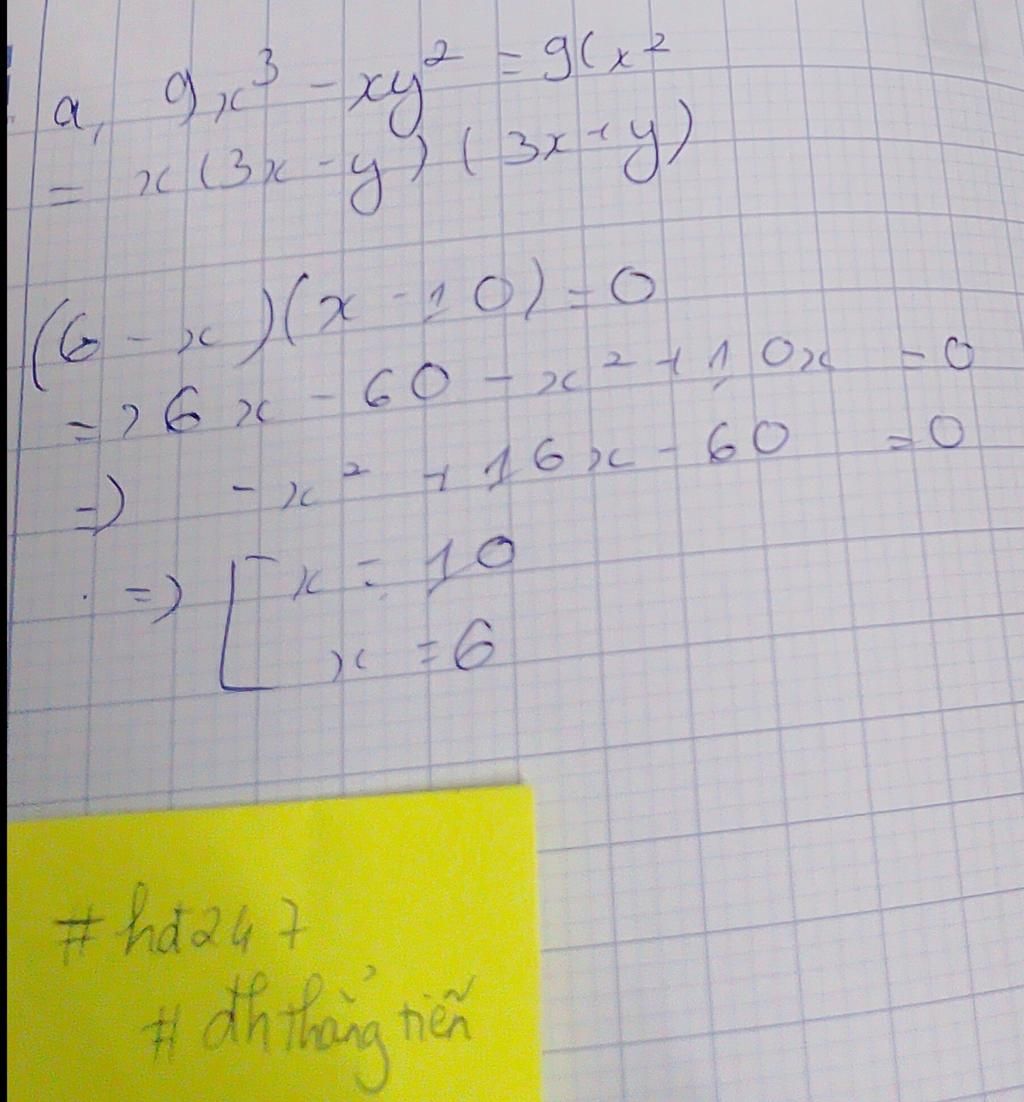 a, 9x³ - xy² = 9(x²
= x(3x - y)(3x + y)
(6 - x)(x - 10) = 0
=> 6x - 60 - x² + 10x = 0
=> - x² + 16x - 60 = 0
=> [ x = 10
x = 6
#hd247
#đhthẳngtiễn